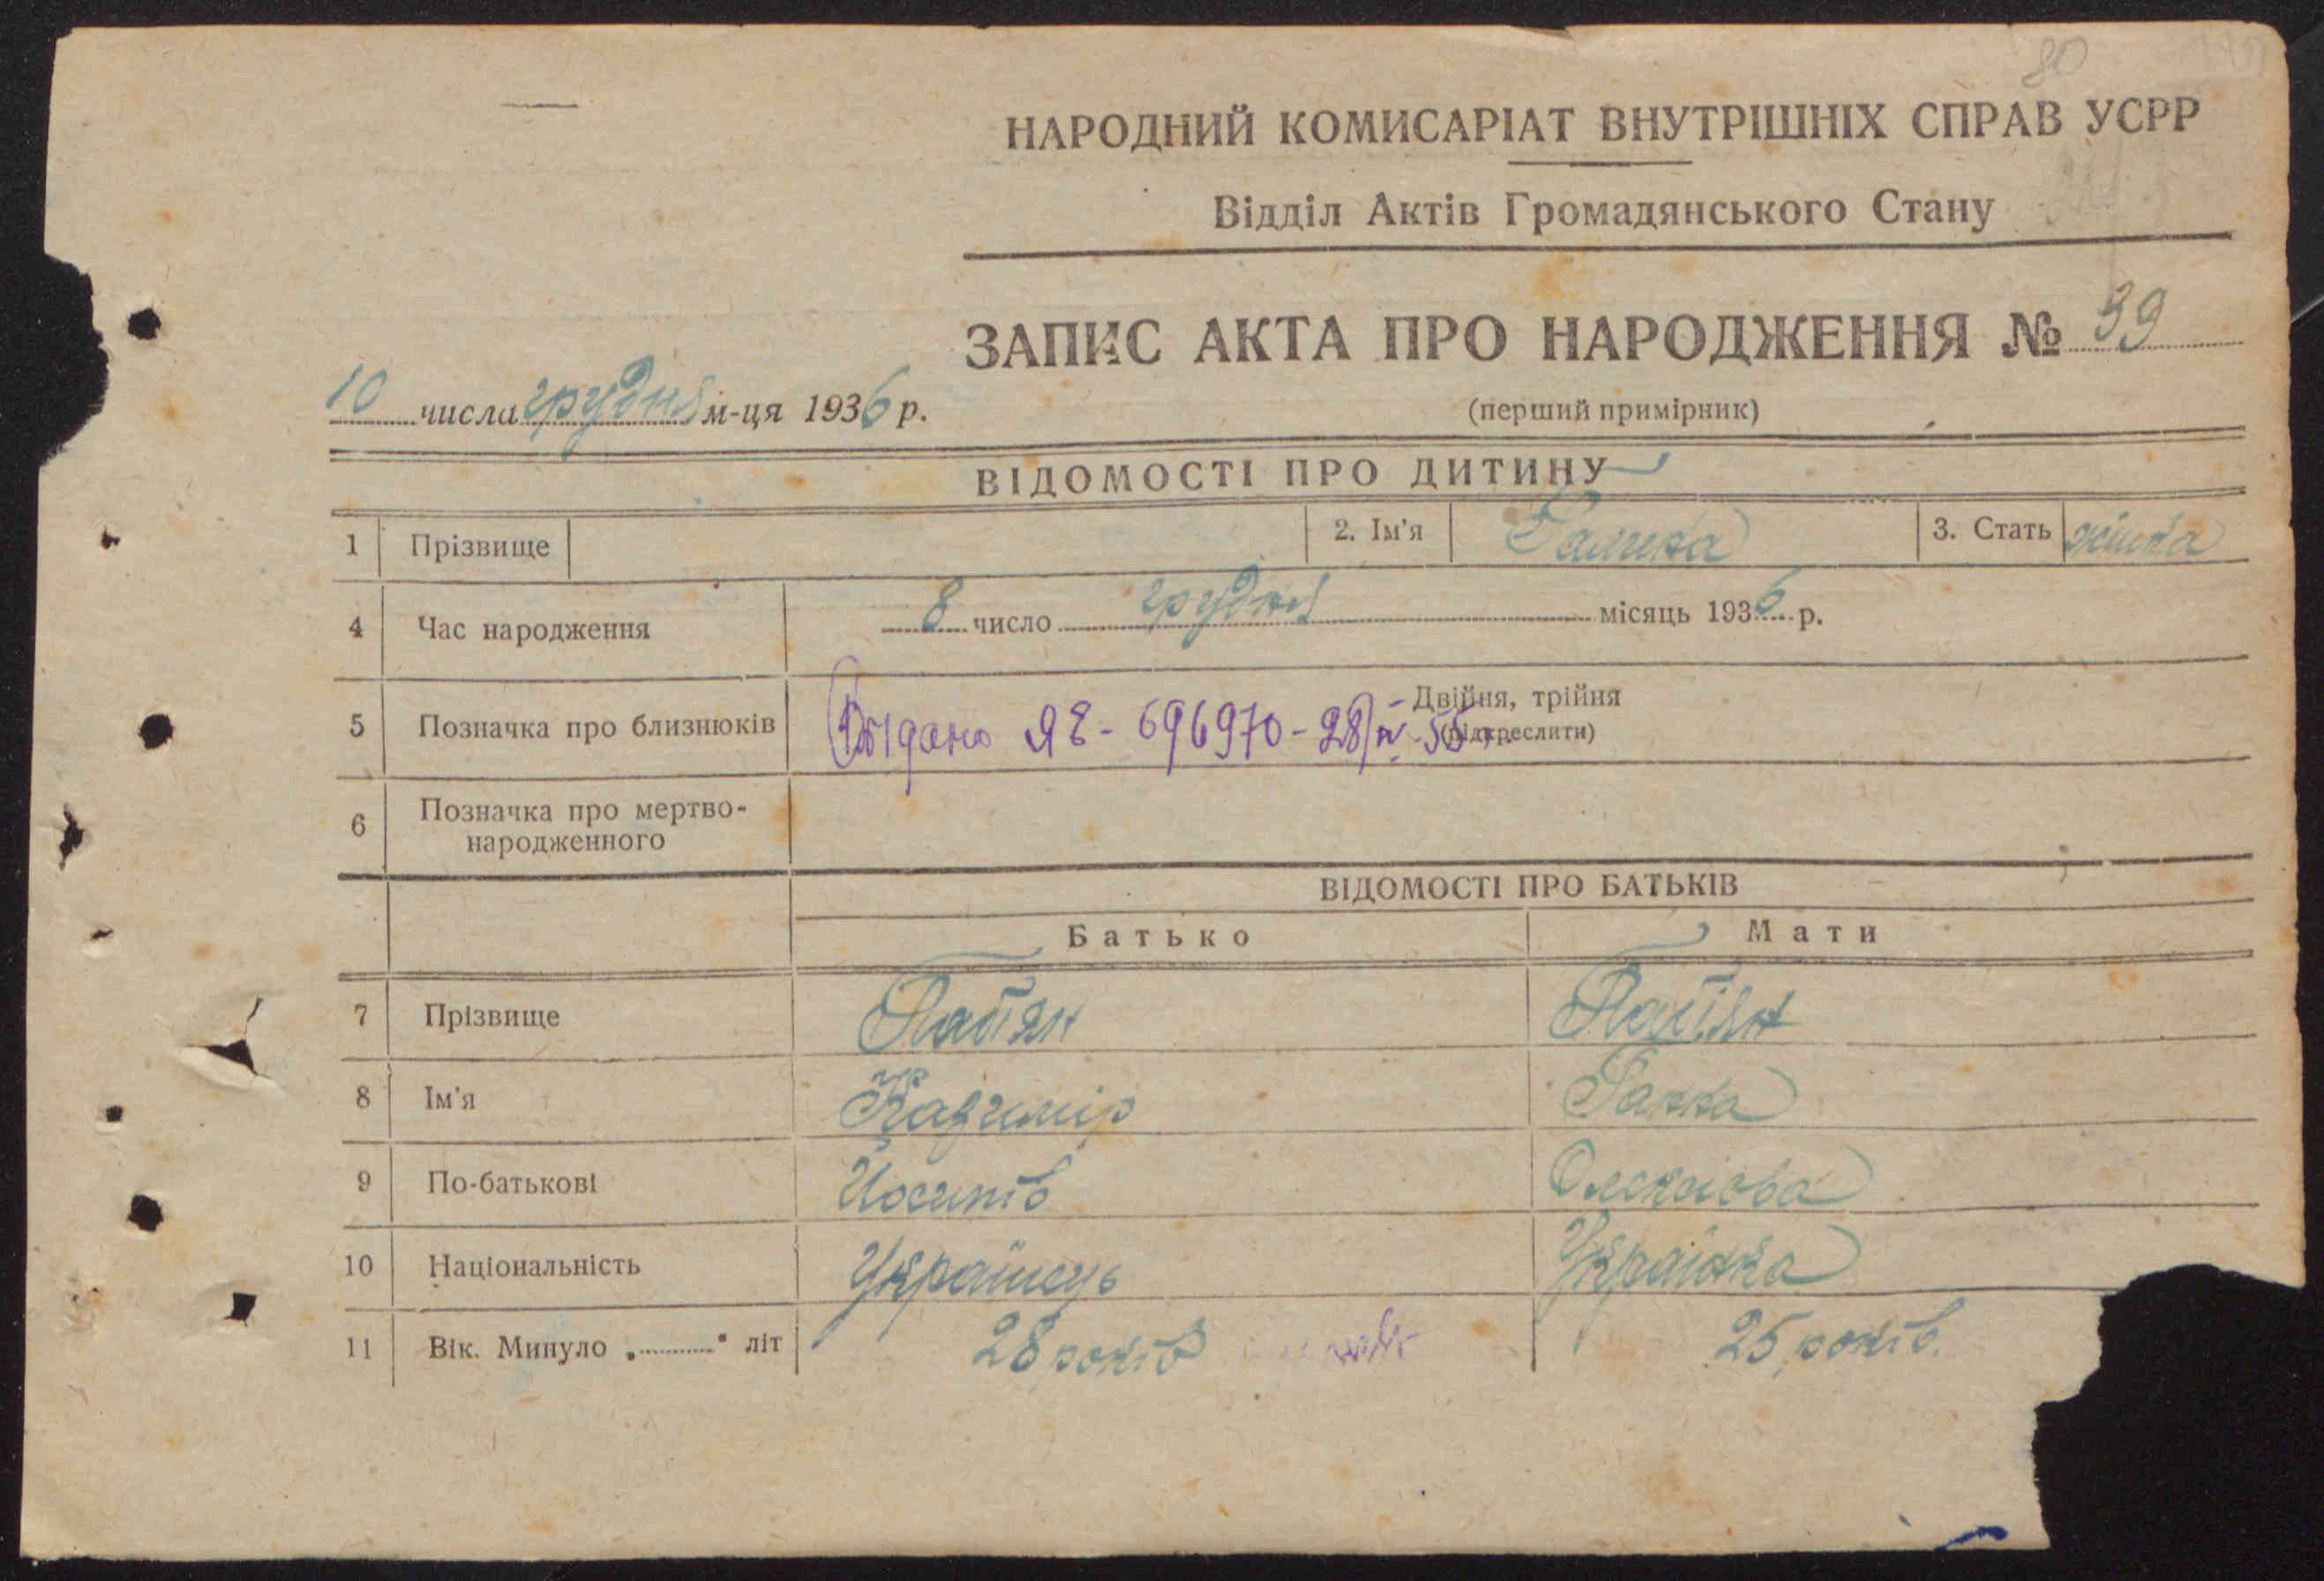 80
НАРОДНИЙ КОМИСАРІАТ ВНУТРІШНІХ СПРАВ УСРР
Відділ Актів Громадянського Стану
ЗАПИС АКТА ПРО НАРОДЖЕННЯ № 39
10 числа грудня м-ця 1936 р.
(перший примірник)
ВІДОМОСТІ ПРО ДИТИНУ
1 Прізвище 2. Ім'я Галина 3. Стать жінка
4 Час народження 8 число грудня місяць 1936 р.
5 Позначка про близнюків Двійня, трійня
(підкреслити)
Выдано ЯЕ - 696970 - 28/IV-55 г.
6 Позначка про мертво-
народженного
ВІДОМОСТІ ПРО БАТЬКІВ
Батько Мати
7 Прізвище
8 Ім'я Казимір Ганна
9 По-батькові Йосипів
10 Національність Українець Українка
11 Вік. Минуло „ " літ 28 років 25 років.